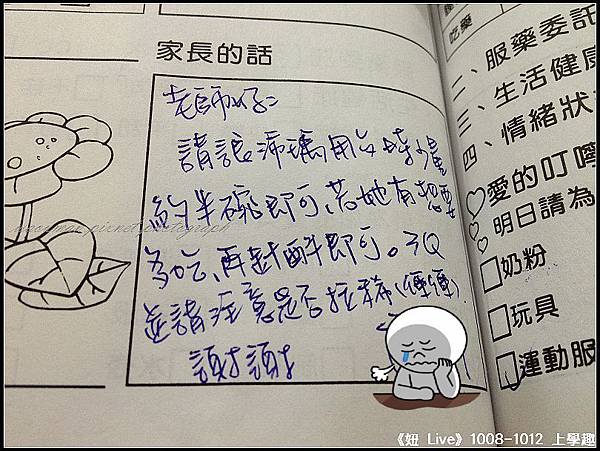 家長的話
老師好:
請讓沛瑀用午時少量
約半碗即可,若她有想要
多吃,再斟酌即可。3Q
並請注意是否拉稀(便便).
謝謝
吃藥
二、服藥委託
三、生活健康
四、情緒狀
愛的叮嚀
明日請為
奶粉
玩具
運動服
《妞 Live》1008-1012 上學趣